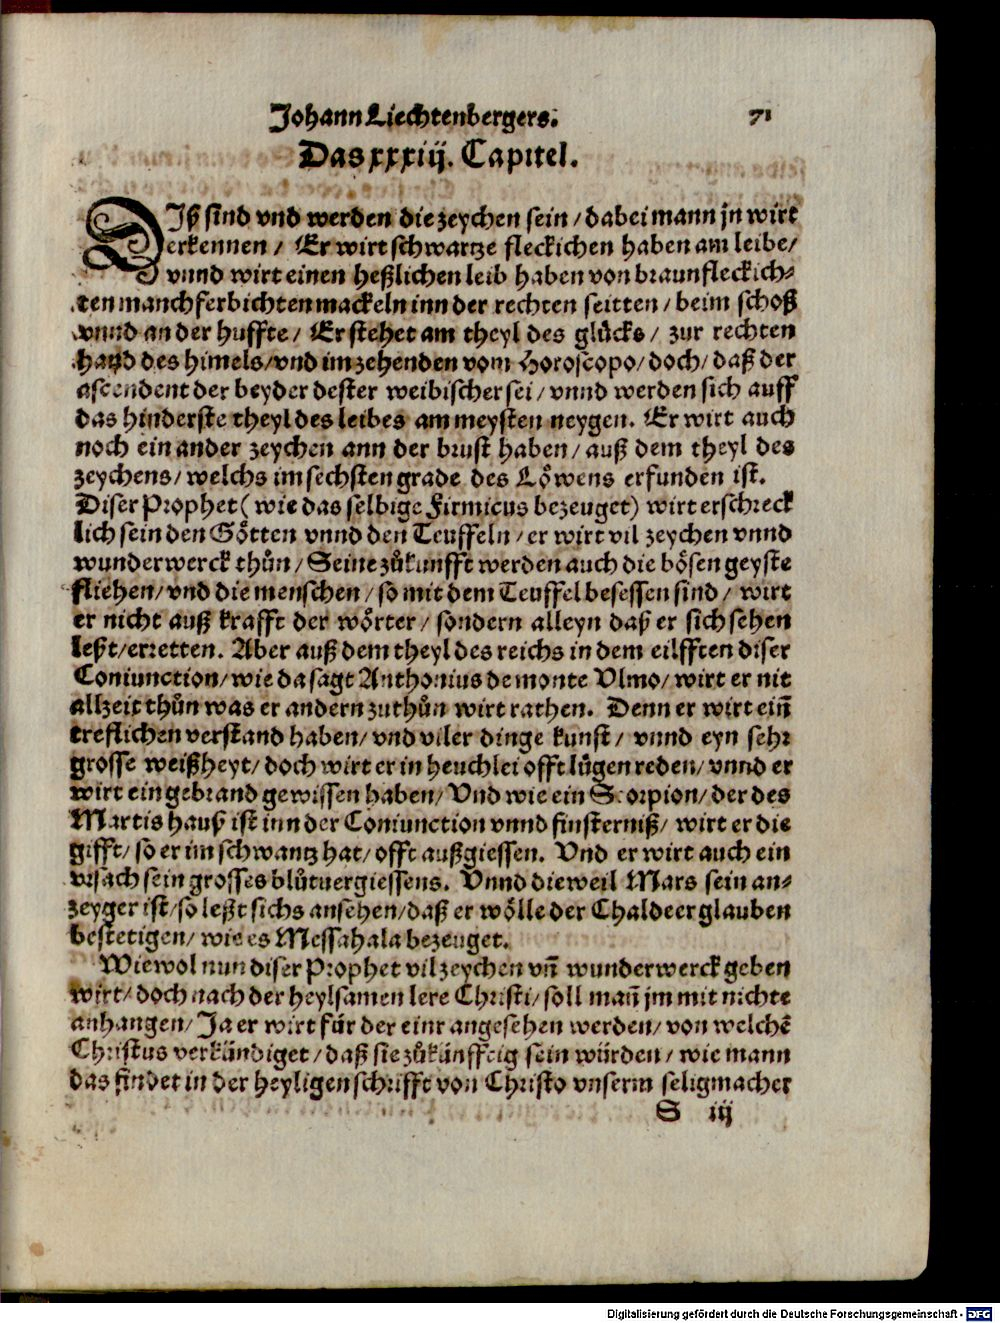 Johann Liechtenbergers. 71
Das xxxiij. Capitel.
DIß sind vnd werden die zeychen sein / dabei mann jn wirt
erkennen / Er wirt schwartze fleckichen haben am leibe /
vnnd wirt einen heßlichen leib haben von braunfleckich-
ten manchferbichten mackeln inn der rechten seitten / beim schoß
vnnd an der huffte / Er stehet am theyl des glücks / zur rechten
hand des himels / vnd im zehenden vom Horoscopo / doch / daß der
ascendent der beyder dester weibischer sei / vnnd werden sich auff
das hinderste theyl des leibes am meysten neygen. Er wirt auch
noch ein ander zeychen ann der brust haben / auß dem theyl des
zeychens / welchs im sechsten grade des Löwens erfunden ist.
Diser Prophet ( wie das selbige Firmicus bezeuget ) wirt erschreck
lich sein den Götten vnnd den Teuffeln / er wirt vil zeychen vnnd
wunderwerck thůn / Seine zůkunfft werden auch die bösen geyste
fliehen / vnd die menschen / so mit dem Teuffel besessen sind / wirt
er nicht auß krafft der wörter / sondern alleyn daß er sich sehen
leßt / erretten. Aber auß dem theyl des reichs in dem eilfften diser
Coniunction / wie da sagt Anthonius de monte Vlmo / wirt er nit
allzeit thůn was er andern zuthůn wirt rathen. Denn er wirt ein̄
treflichen verstand haben / vnd viler dinge kunst / vnnd eyn sehr
grosse weißheyt / doch wirt er in heuchlei offt lügen reden / vnnd er
wirt ein gebrand gewissen haben / Vnd wie ein Scorpion / der des
Martis hauß ist inn der Coniunction vnnd finsterniß / wirt er die
gifft / so er im schwantz hat / offt außgiessen. Vnd er wirt auch ein
vrsach sein grosses blůtuergiessens. Vnnd dieweil Mars sein an-
zeyger ist / so leßt sichs ansehen / daß er wölle der Chaldeer glauben
bestetigen / wie es Messahala bezeuget.
Wiewol nun diser Prophet vil zeychen vn̄ wunderwerck geben
wirt / doch nach der heylsamen lere Christi / soll man̄ jm mit nichte
anhangen / Ja er wirt für der einr angesehen werden / von welchē
Christus verkündiget / daß sie zůkünfftig sein würden / wie mann
das findet in der heyligen schrifft von Christo vnserm seligmacher
S iij
Digitalisierung gefördert durch die Deutsche Forschungsgemeinschaft - DFG